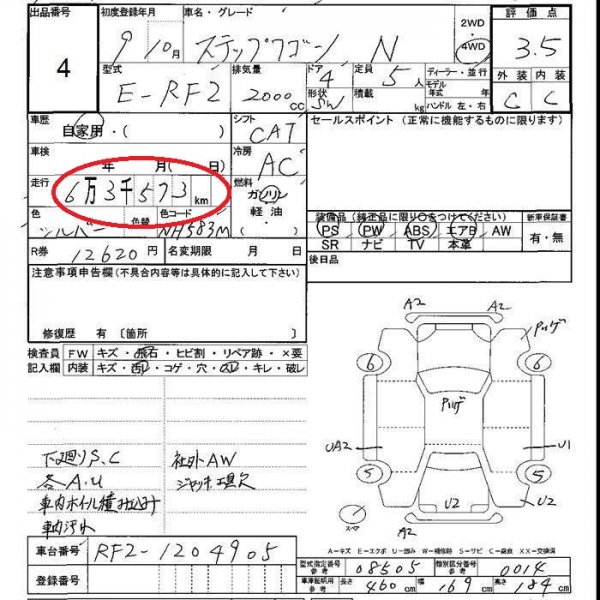 出品番号 初度登録年月 車名・グレード 2WD 評価点
4 9 10月 ステップワゴン N 4WD 3.5
型式 排気量 ドア 定員 ディーラー・並行 外装 内装
E-RF2 2000cc 4 5人 モデル年式 年式 C C
形状 SW 積載 kg ハンドル 左・右
車歴 自家用・( ) シフト CAT セールスポイント (正常に機能するものに限ります)
車検 年 月( 日) 冷房 AC
走行 6万3千573km 燃料 ガソリン 軽油・
色 シルバー 色替 色コード NH583M
装備品(純正品に限り○をつけてください) 新車保証書
PS PW ABS エアB AW 有・無
SR ナビ TV 本革
R券 12620円 名変期限 月 日 後日品
注意事項申告欄(不具合内容等は具体的に記入して下さい)
修復歴 有 〔箇所 〕
検査員 FW キズ・飛石・ヒビ割・リペア跡・×要
記入欄 内装 キズ・コゲ・穴・キレ・破レ
A2 A2
6 6
UA2 U1
5 5
U2 U2
スペア A2
下廻りS.C 社外AW
各A.U ジャッキ工具欠
車内ホイル積み込み
車内汚れ
A-キズ E-エクボ U-凹み W-補修跡 S-サビ C-腐食 XX-交換済
車台番号 RF2-1204905
型式指定番号 参考 08505 類別区分番号 参考 0014
登録番号
車庫証明用 参考 長さ 460cm 幅 169cm 高さ 184cm